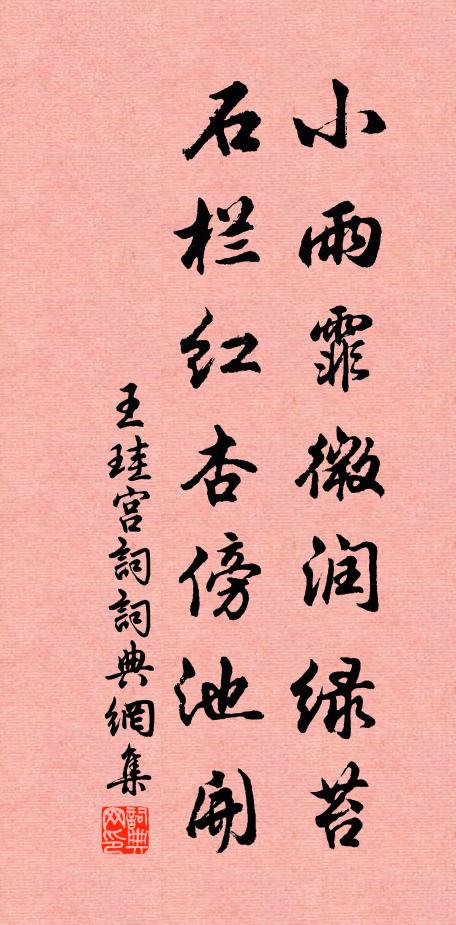 小雨霏微润绿苔
石栏红杏傍池开
王珪宫詞詞典網集
詞典网印